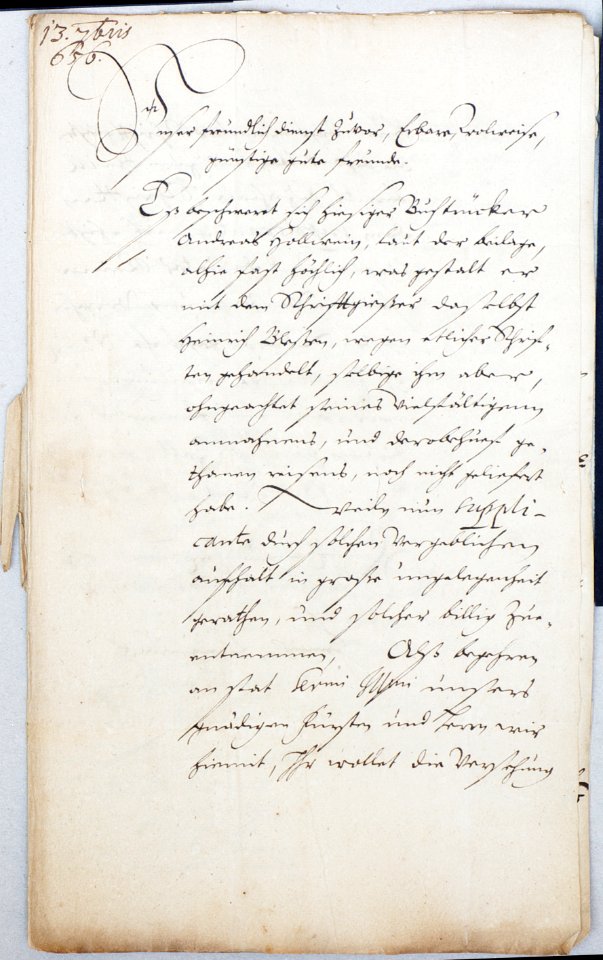 13. 7bris
656.
Unser freundlich dienst Zuvor, Erbare, wolweise,
günstige gute freunde.
Eß beschweret sich hiesiger Buchtrücker
Andreas Hollwein, laut der beilage,
alhie fast höchlich, was gestalt er
mit dem Schrifftgießer daselbst
Heinrich wegen etlicher Schrif-
ten gehandelt, selbige ihm aber,
ohngeachtet seines Vielfältigenn
anmahnens, und derobehuef ge-
thanen reisens, noch nicht geliefert
habe. Weiln nun Suppli-
cante durch solchen Vergeblichen
auffhalt in große ungelegenheit
gerathen, und solcher billig Zue-
entnemmen, Alß begehren
an stat unsers
gnädigen Fürsten und Herrn wir
hiemit, Ihr wollet die Versehung